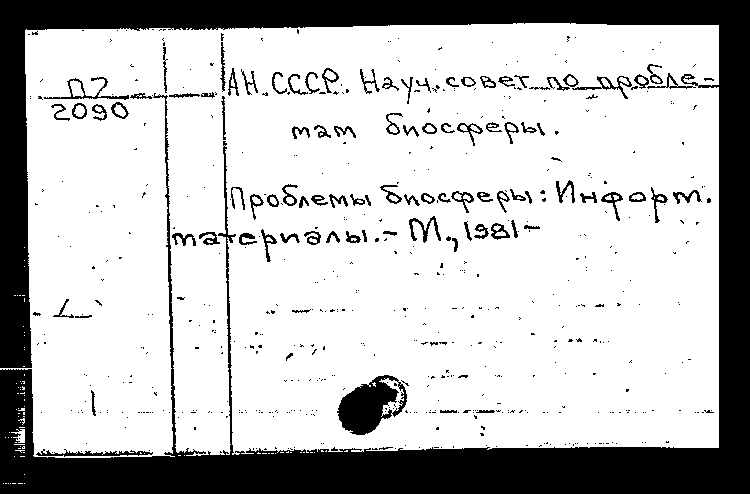 П7
2090
АН СССР. Науч. совет по пробле-
мам биосферы.
Проблемы биосферы: Информ.
материалы. - М., 1981 -